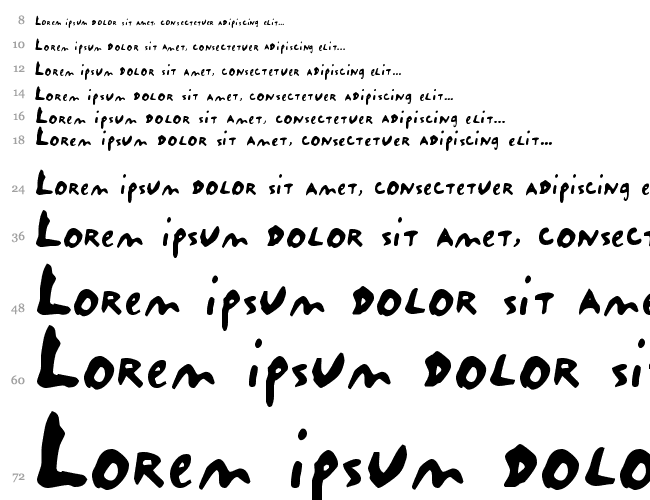 8 Lorem ipsum dolor sit amet, consectetuer adipiscing elit...
10 Lorem ipsum dolor sit amet, consectetuer adipiscing elit...
12 Lorem ipsum dolor sit amet, consectetuer adipiscing elit...
14 Lorem ipsum dolor sit amet, consectetuer adipiscing elit...
16 Lorem ipsum dolor sit amet, consectetuer adipiscing elit...
18 Lorem ipsum dolor sit amet, consectetuer adipiscing elit...
24 Lorem ipsum dolor sit amet, consectetuer adipiscing e
36 Lorem ipsum dolor sit amet, consect
48 Lorem ipsum dolor sit ame
60 Lorem ipsum dolor si
72 Lorem ipsum dolo